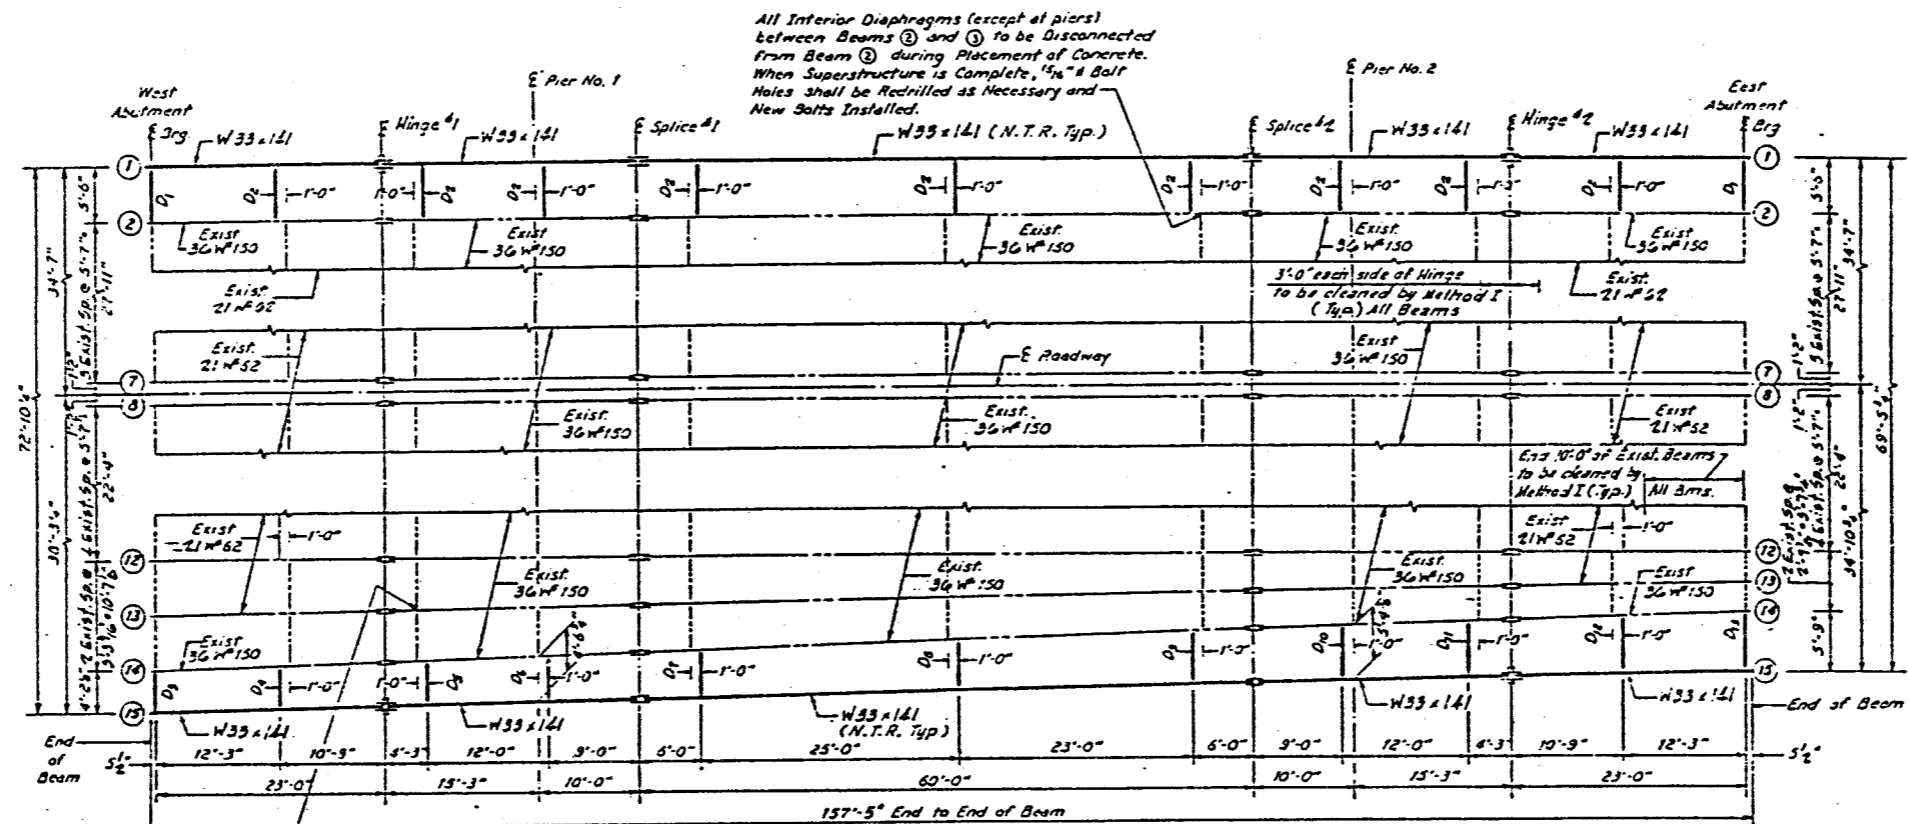 All Interior Diaphragms (except at piers)
between Beams ② and ③ to be Disconnected
from Beam ② during Placement of Concrete.
When Superstructure is Complete, 15/16" ø Bolt
Holes shall be Redrilled as Necessary and
New Bolts Installed.
West
Abutment
℄ Brg.
℄ Pier No. 1
℄ Pier No. 2
East
Abutment
℄ Brg
℄ Hinge #1
℄ Splice #1
℄ Splice #2
℄ Hinge #2
W33x141
W33x141
W33x141 (N.T.R. Typ.)
W33x141
W33x141
① ①
D1 D2 1'-0" 1'-0" D2 D2 1'-0" D2 1'-0" D2 1'-0" D2 1'-0" D2 1'-0" D2 1'-0" D2 1'-0" D1
② ②
Exist
36 WF 150
Exist.
36 WF 150
Exist.
36 WF 150
Exist.
36 WF 150
Exist
36 WF 150
Exist.
21 WF 62
3'-0" each side of Hinge
to be cleaned by Method I
(Typ.) All Beams
Exist
21 WF 62
Exist.
21 WF 52
℄ Roadway
Exist
36 WF 150
⑦ ⑦
⑧ ⑧
Exist.
36 WF 150
Exist.
36 WF 150
Exist
21 WF 52
End 10'-0" of Exist. Beams
to be cleaned by
Method I (Typ.) All Bms.
Exist
21 WF 62
1'-0"
Exist
21 WF 52
1'-0"
⑫ ⑫
Exist.
36 WF 150
Exist.
36 WF 150
Exist.
36 WF 150
⑬ ⑬
Exist
36 WF 150
⑭ ⑭
Exist
36 WF 150
D3 D4 1'-0" 1'-0" D5 D6 1'-0" D7 1'-0" D8 1'-0" D9 1'-0" D10 1'-0" D11 1'-0" D12 1'-0" D13
⑮ ⑮
W33x141
W33x141
W33x141
(N.T.R. Typ)
W33x141
W33x141
End
of
Beam
End of Beam
5½" 12'-3" 10'-9" 4'-3" 12'-0" 9'-0" 6'-0" 25'-0" 23'-0" 6'-0" 9'-0" 12'-0" 4'-3" 10'-9" 12'-3" 5½"
23'-0" 15'-3" 10'-0" 60'-0" 10'-0" 15'-3" 23'-0"
157'-5" End to End of Beam
34'-7"
5'-6"
27'-11"
1'-2"
1'-2"
22'-4"
5'-6"
27'-11"
34'-7"
1'-2"
1'-2"
22'-4"
5'-9"